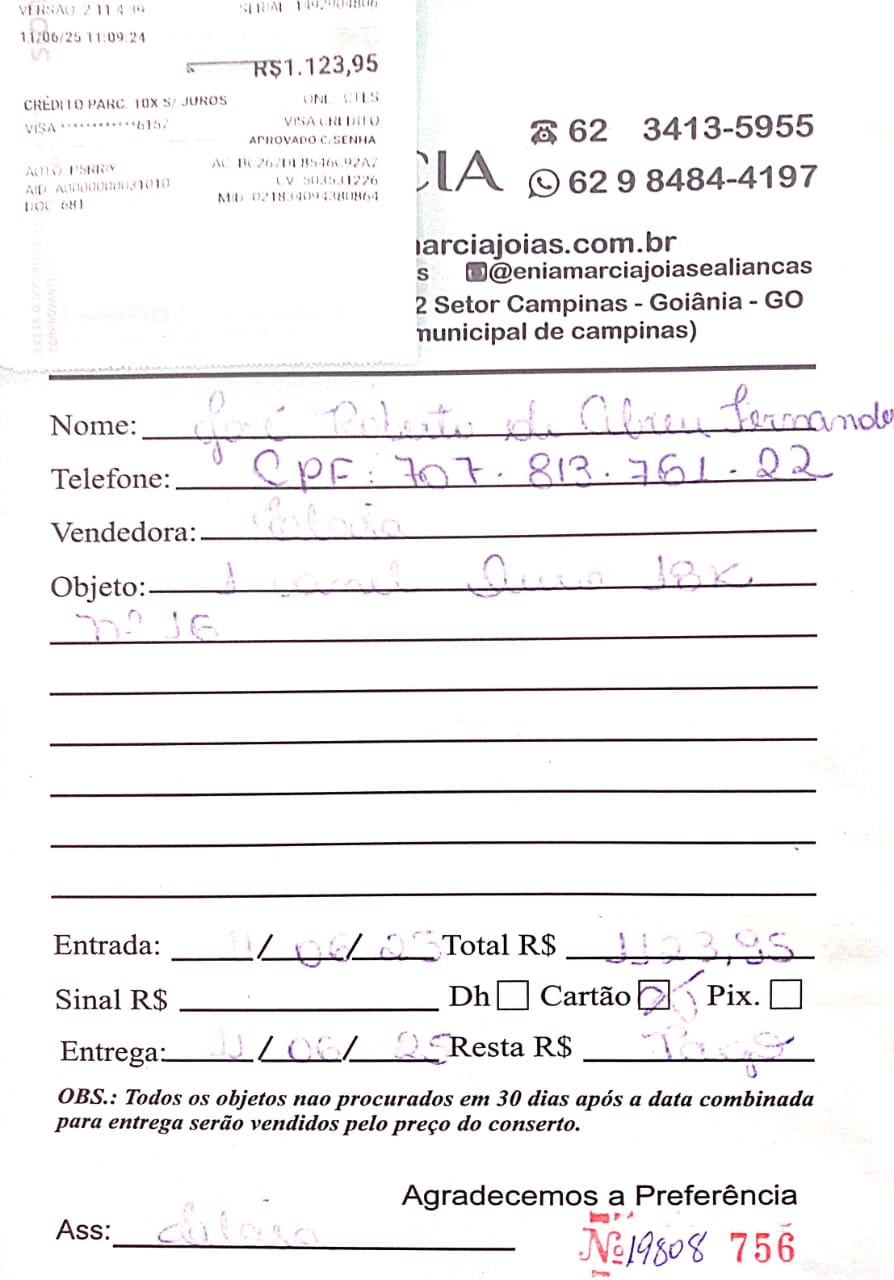 VERSAO 2 11 4 39 SERIAL 1492904806
11/06/25 11:09:24
R$1.123,95
CRÉDITO PARC. 10X S/ JUROS ONL CTLS
VISA ************6157 VISA CREDITO
APROVADO C/SENHA
AUTO. AC
AID A0000000031010 CV 503531226
DOC 681 MID 021834094380864
CIA
62 3413-5955
62 9 8484-4197
arciajoias.com.br
s @eniamarciajoiasealiancas
2 Setor Campinas - Goiânia - GO
municipal de campinas)
Nome: José Roberto de Abreu Fernando
Telefone: CPF: 707.813.761.22
Vendedora:
Objeto: 1 anel Ouro 18K
nº 16
Entrada: 11/06/25 Total R$ 1123,95
Sinal R$ Dh Cartão Pix.
Entrega: 11/06/25 Resta R$ Pago
OBS.: Todos os objetos nao procurados em 30 dias após a data combinada
para entrega serão vendidos pelo preço do conserto.
Agradecemos a Preferência
Ass:
Nº 19808 756